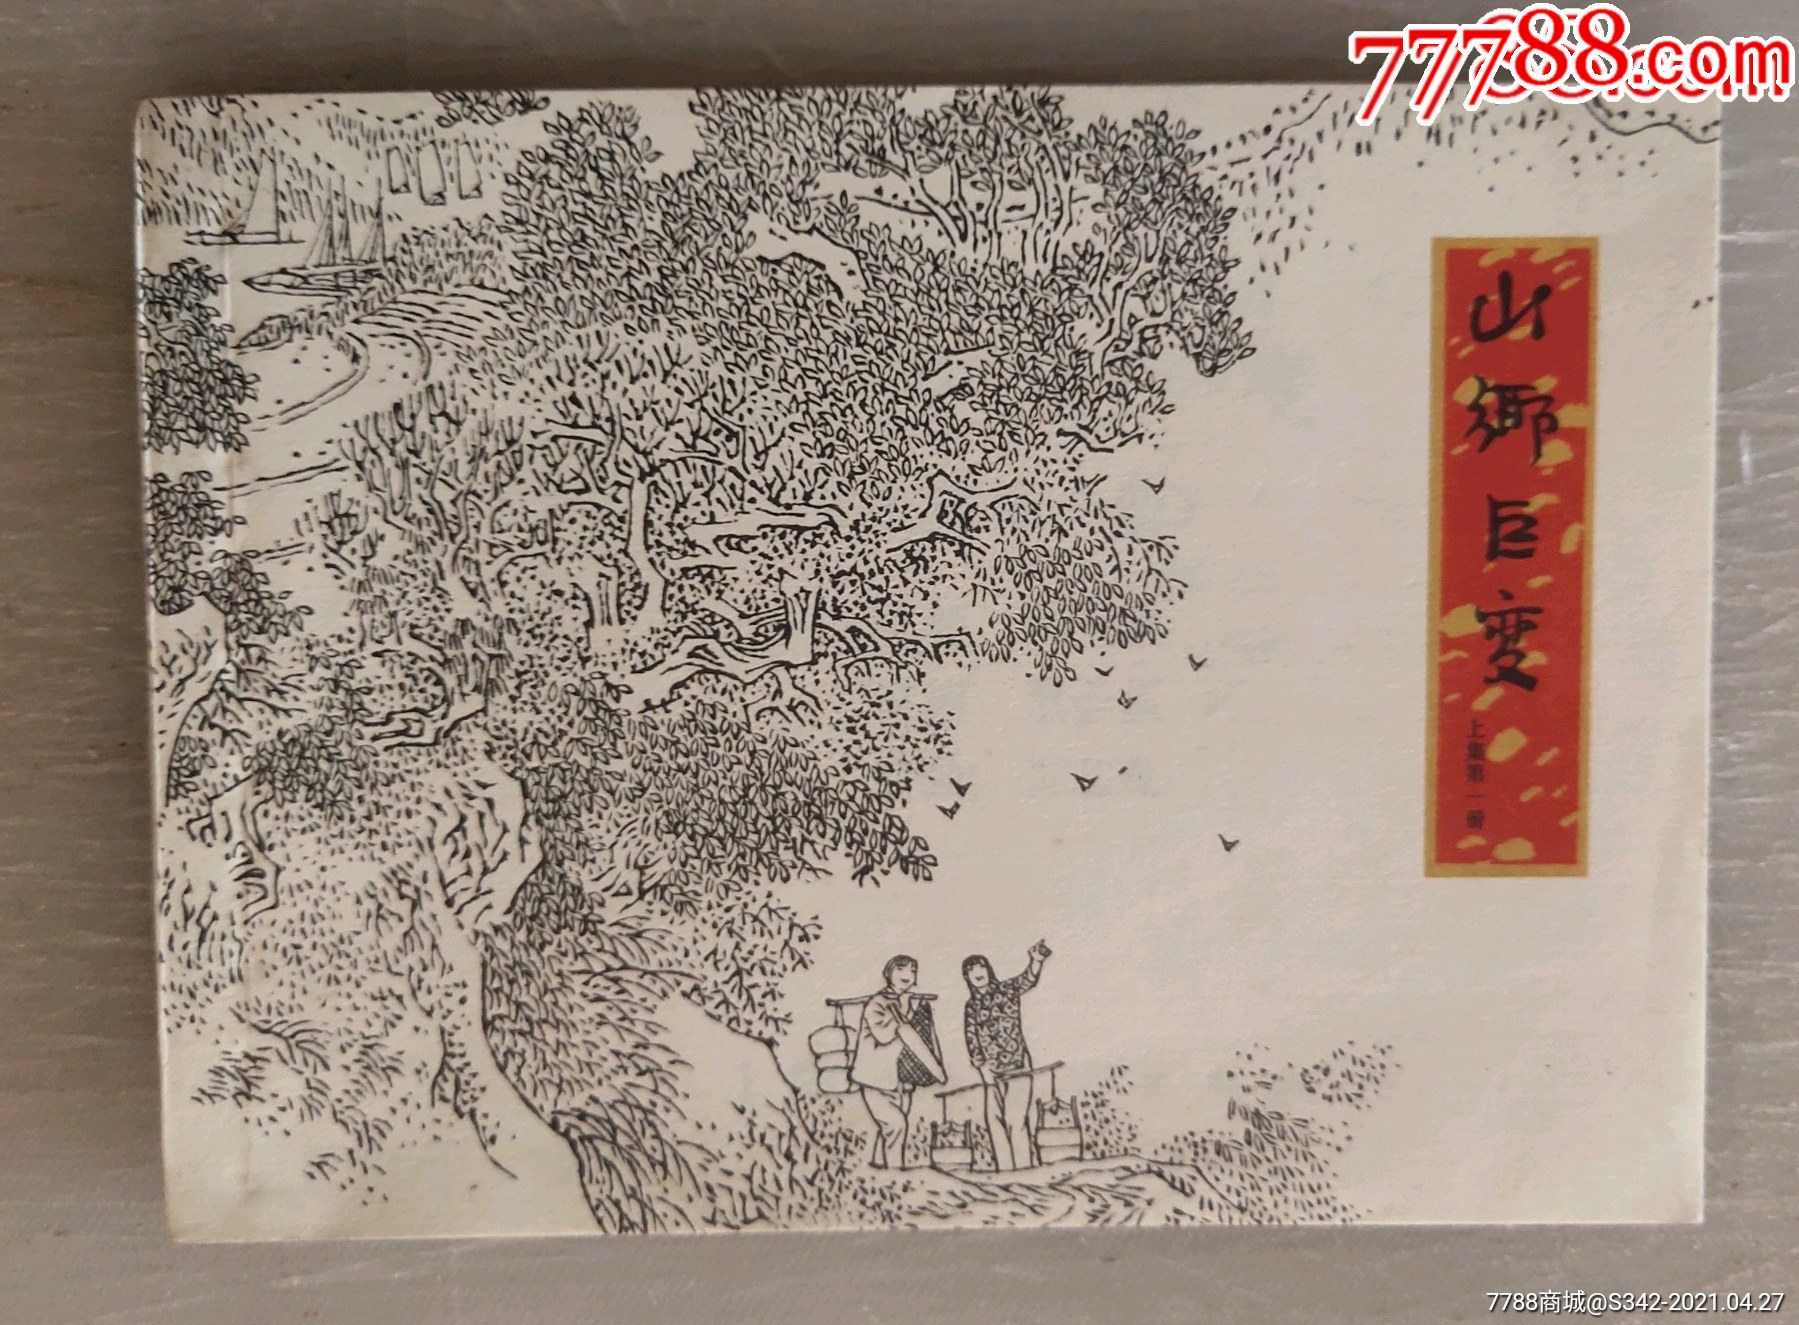 77788.com
山鄉巨变
上集第一册
7788商城@S342-2021.04.27